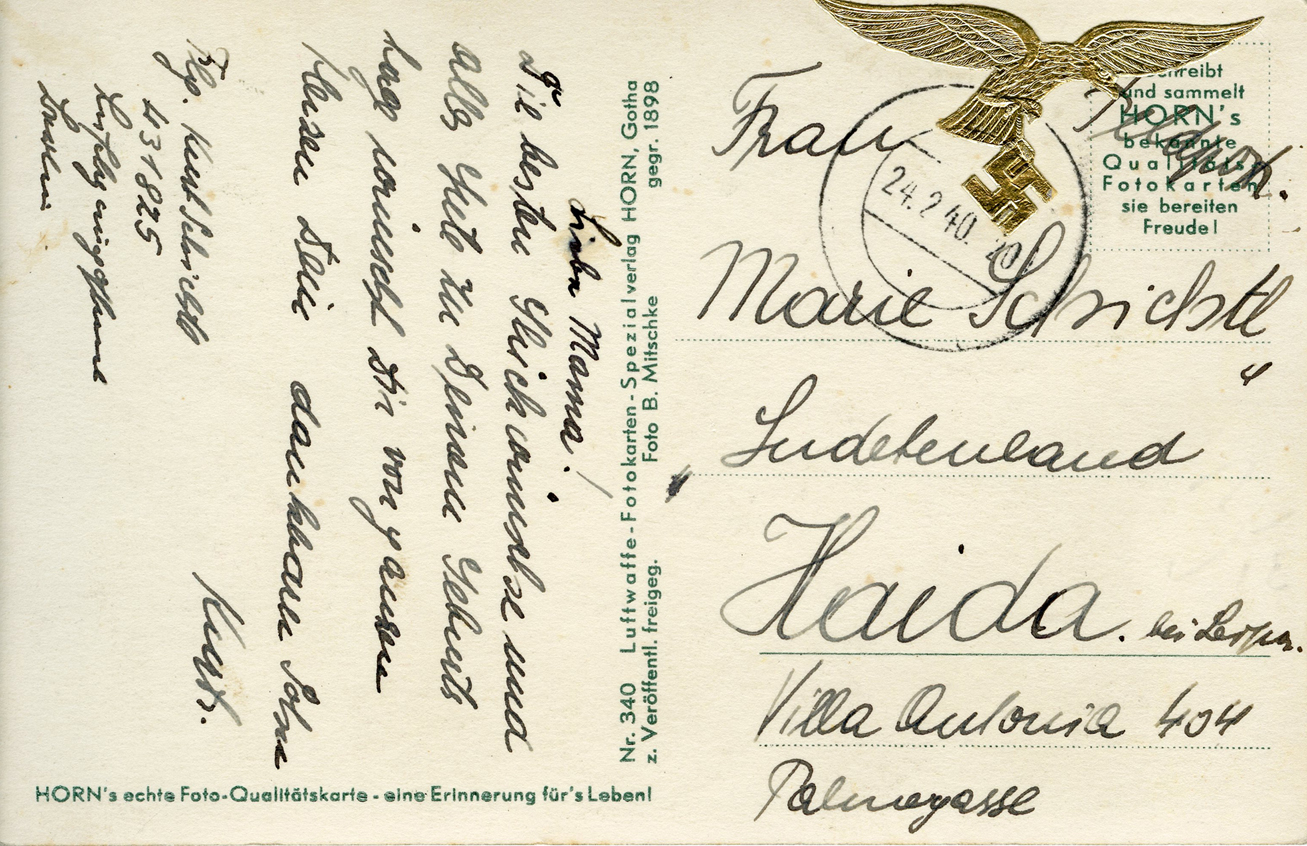 Liebe Mama!
Die besten Glückwünsche und
alles Gute zu Deinem Geburts
tage wünscht Dir von ganzem
Herzen Dein dankbarer Sohn
Kurt.
Flg. Kurt Schicktl
L 31825
Lg
Dresden
Nr. 340 Luftwaffe-Fotokarten-Spezialverlag HORN, Gotha
z. Veröffentl. freigeg. Foto B. Mitschke gegr. 1898
HORN's echte Foto-Qualitätskarte - eine Erinnerung für's Leben!
Feldpost.
schreibt
und sammelt
HORN's
bekannte
Qualitäts
Fotokarten
sie bereiten
Freude!
24.2.40. 20
Frau
Marie Schicktl
Sudetenland
Haida. bei Leipa.
Villa Antonia 404
Palmegasse